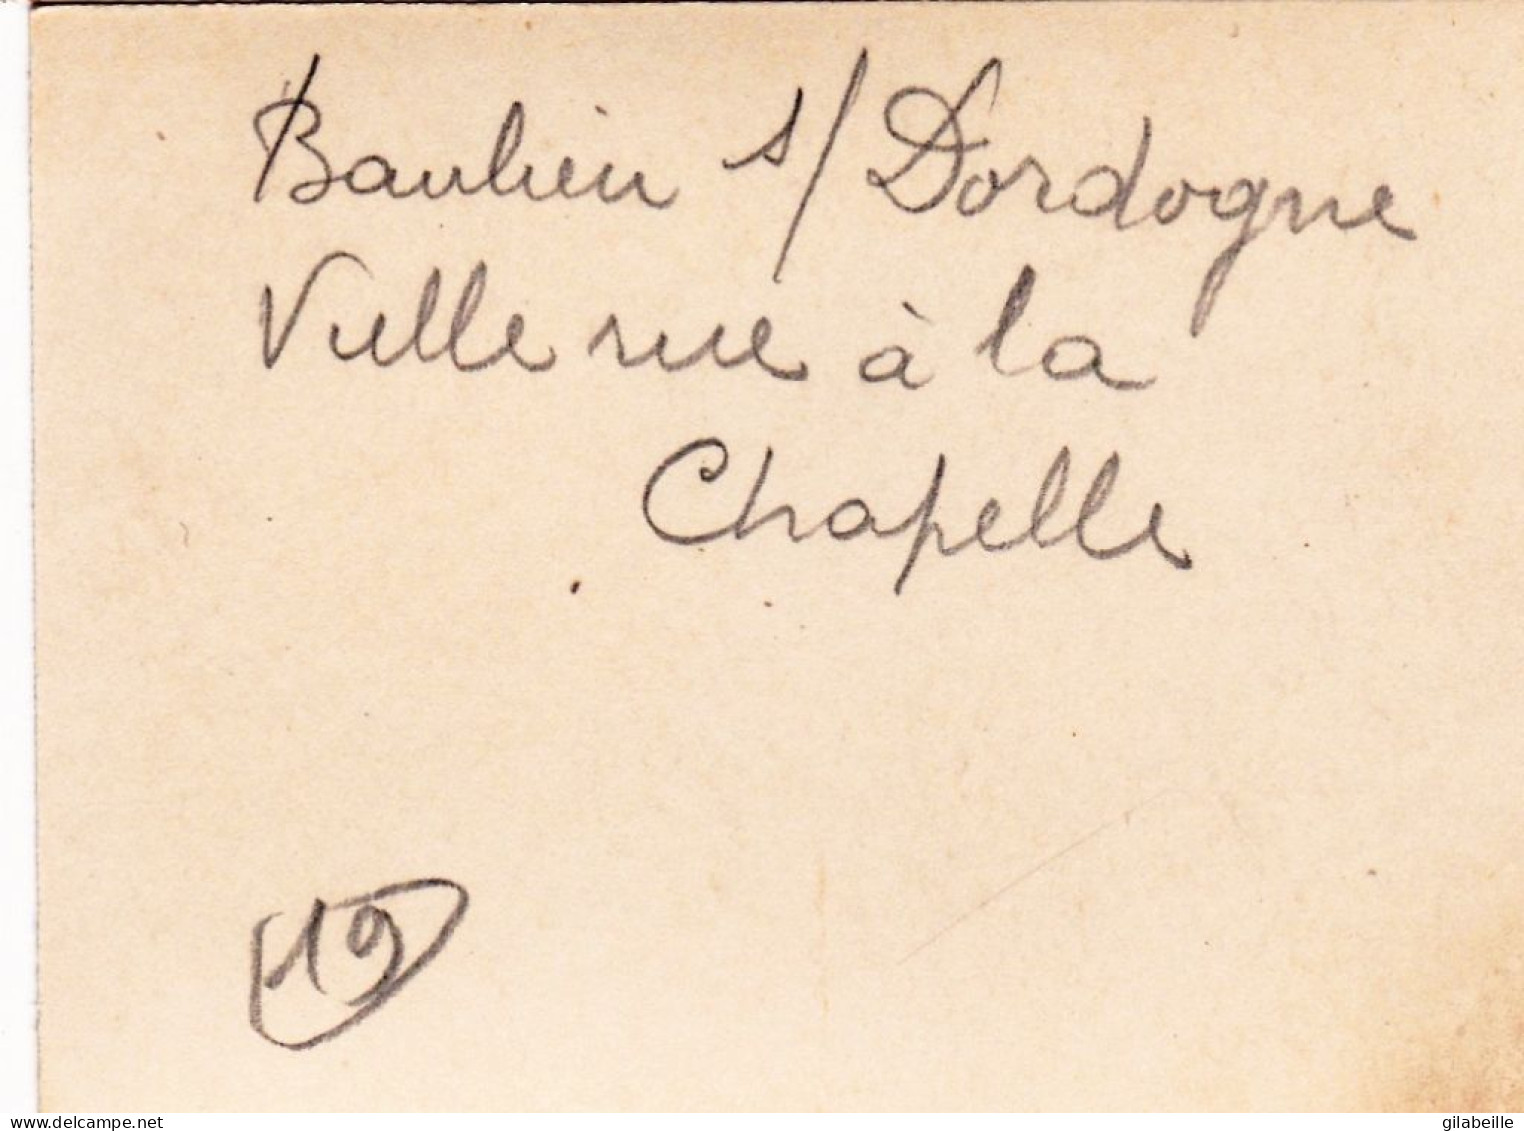 Baulieu s/Dordogne
Vielle rue à la
Chapelle
19
delcampe.net
gilabeille